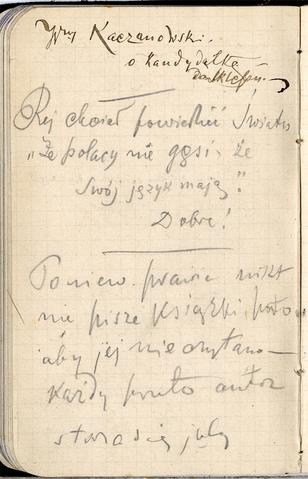 Kaczanowski.
o kandydatkę
Rej chciał powiedzieć Światu
„Że polacy nie gęsi, że
Swój język mają”.
Dobre!
Poniew. prawie nikt
nie pisze książki, poto
aby jej nie czytano —
Każdy przeto autor
stara się, jeby